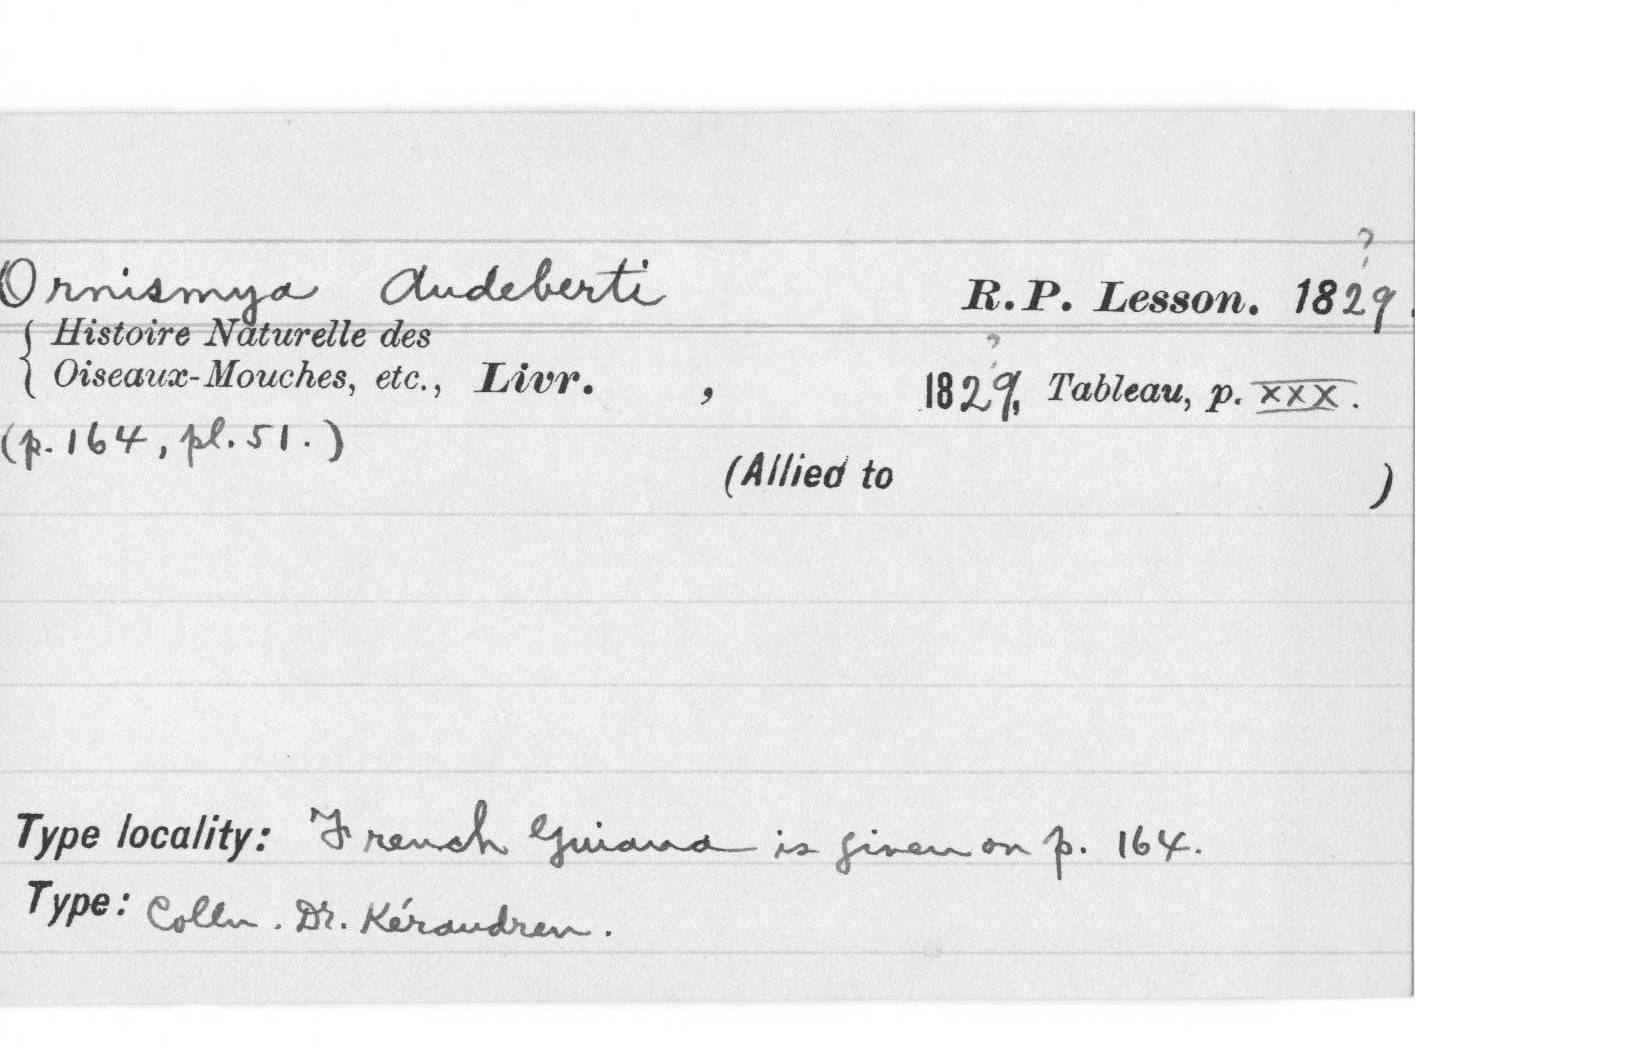 ?
Ornismya Audeberti R.P. Lesson. 1829.
{ Histoire Naturelle des
?
Oiseaux-Mouches, etc., Livr. , 1829, Tableau, p. XXX.
(p. 164, pl. 51.)
(Allied to )
Type locality: French Guiana is given on p. 164.
Type: Colln. Dr. Kéraudren.